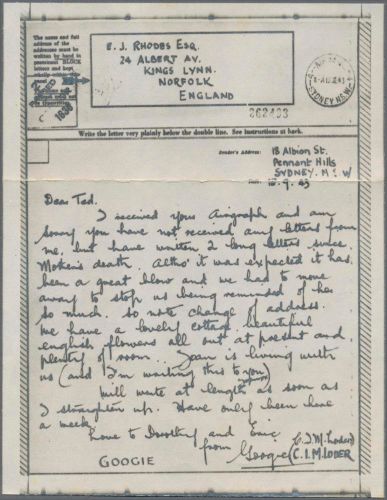 The name and full
address of the
addressee must be
written by hand in
prominent BLOCK
letters
E. J. RHODES ESQ.
24 ALBERT AV.
KINGS LYNN.
NORFOLK
ENGLAND
SYDNEY. N.S.W
1638
Write the letter very plainly below the double line. See instructions at back.
Sender's Address: 18 Albion St.
Pennant Hills
SYDNEY.
Dear Ted.
I received your airgraph and am
sorry you have not received any letters from
me, but have written 2 long letters since
Mother's death. Altho' it was expected it has
been a great blow and we had to move
away to stop us being reminded of her
so much. So note change of address.
We have a lovely cottage, beautiful
english flowers all out at present and
plenty of room. Joan is living with
us (and I'm writing this to you)
Will write at length as soon as
I straighten up. Have only been here
a week.
Love to Dorothy and Eric
from Googie
GOOGIE